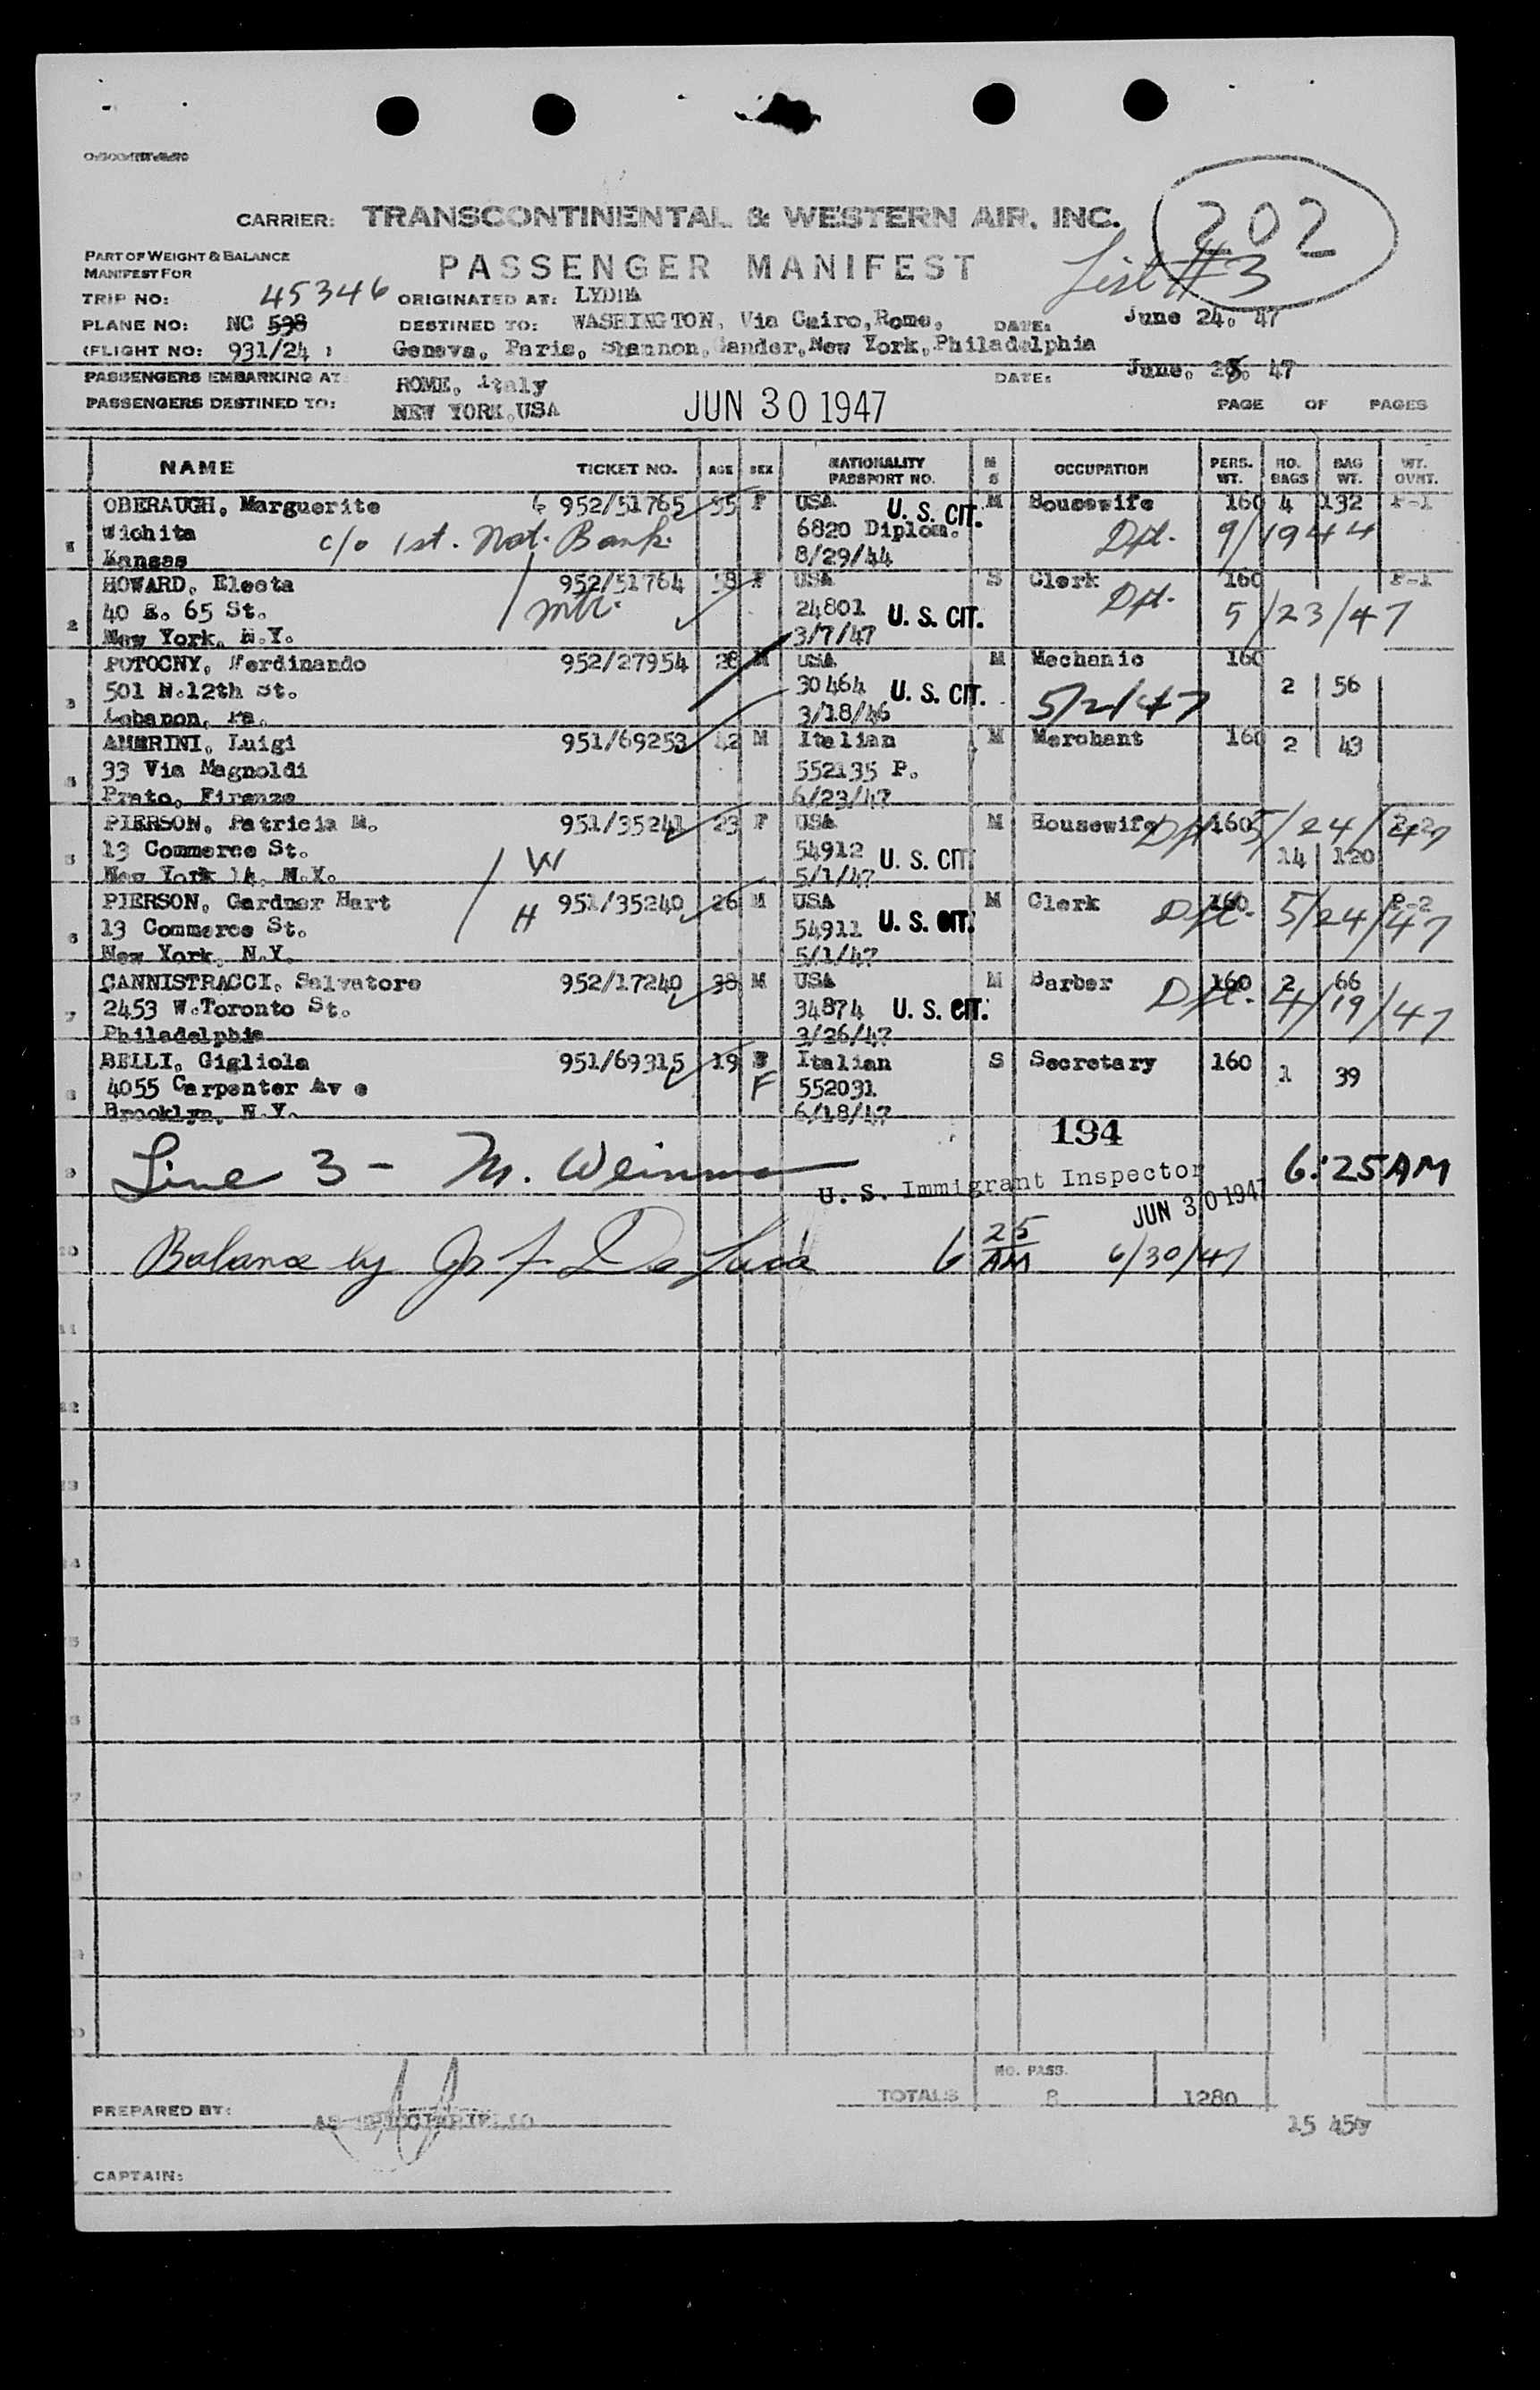 202
CARRIER: TRANSCONTINENTAL & WESTERN AIR, INC.
List #3
PART OF WEIGHT & BALANCE
MANIFEST FOR
PASSENGER MANIFEST
TRIP NO: 45346 ORIGINATED AT: LYDIA
PLANE NO: NC 598 DESTINED TO: WASHINGTON, Via Cairo, Rome, DATE: June 24. 47
(FLIGHT NO: 931/24 ) Geneva, Paris, Shannon, Gander, New York, Philadelphia
PASSENGERS EMBARKING AT: ROME, Italy DATE: June. 47
PASSENGERS DESTINED TO: NEW YORK, USA JUN 30 1947 PAGE OF PAGES
NAME TICKET NO. AGE SEX NATIONALITY PASSPORT NO. M S OCCUPATION PERS. WT. NO. BAGS BAG WT. WT. OVHT.
OBERAUGH, Marguerite 952/51765 55 F USA U. S. CIT. M Housewife 160 4 132 F-1
1 Wichita c/o 1st. Nat. Bank. 6820 Diplom. Dpt. 9/1944
Kansas 8/29/44
HOWARD, Electa 952/51764 F USA S Clerk 160 F-1
2 40 E. 65 St. 24801 U. S. CIT. Dpt. 5/23/47
New York, N.Y. 3/7/47
POTOCNY, Ferdinando 952/27954 28 M USA M Mechanic 160
3 501 N.12th St. 30464 U. S. CIT. 5/2/47 2 56
Lebanon, Pa. 3/18/46
AMERINI, Luigi 951/69253 42 M Italian M Merchant 160 2 43
4 33 Via Magnoldi 552135 P.
Prato, Firenze 6/23/47
PIERSON, Patricia M. 951/35241 23 F USA M Housewife Dpt. 160 5/24/47 P-2
5 13 Commerce St. W 54912 U. S. CIT. 14 120
New York 14, N.Y. 5/1/47
PIERSON, Gardner Hart H 951/35240 26 M USA M Clerk Dpt. 160 5/24/47 P-2
6 13 Commerce St. 54911 U. S. CIT.
New York, N.Y. 5/1/47
CANNISTRACCI, Salvatore 952/17240 38 M USA M Barber 160 2 66
7 2453 W.Toronto St. 34874 U. S. CIT. Dpt. 4/19/47
Philadelphia 3/26/47
BELLI, Gigliola 951/69315 19 F Italian S Secretary 160 1 39
8 4055 Carpenter Av e 552031
Brooklyn, N.Y. 6/18/47
194
9 Line 3 - M. Weinman U. S. Immigrant Inspector 6:25 AM
JUN 30 1947
10 Balance by Jos F. De Luca 6 25 AM 6/30/47
11
12
13
14
TOTALS NO. PASS. 8 1280
15 457
PREPARED BY:
CAPTAIN: